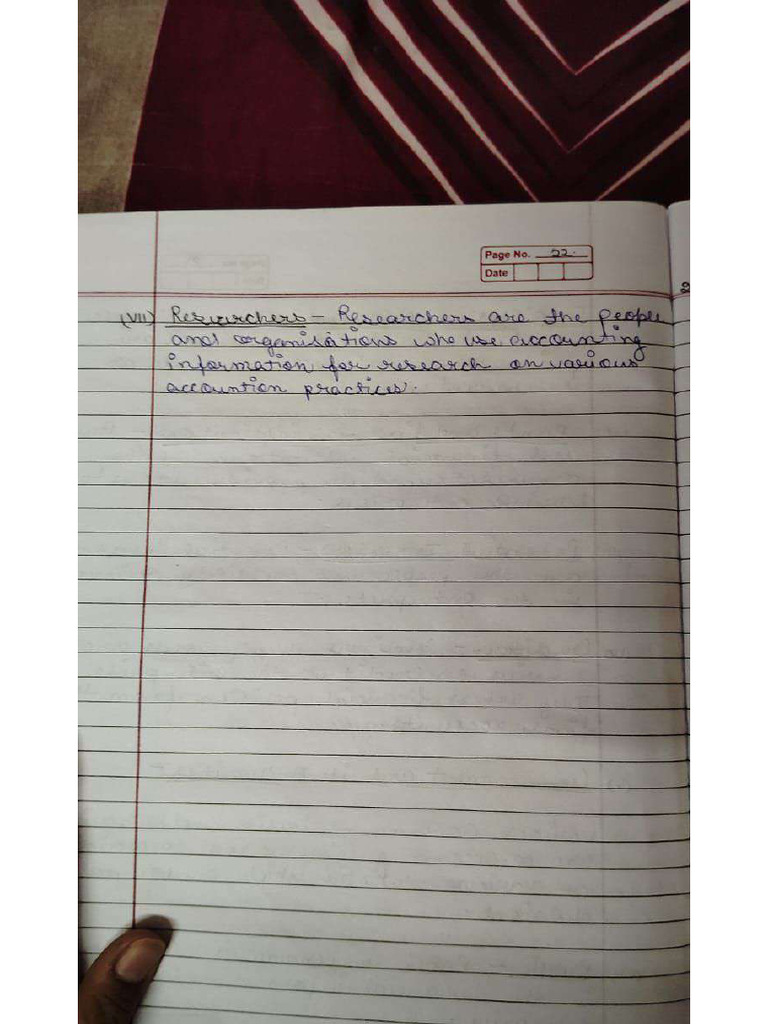 Page No. 22.
Date
(VII) Researchers - Researchers are the people
and organisations who use accounting
information for research on various
accountion practices.